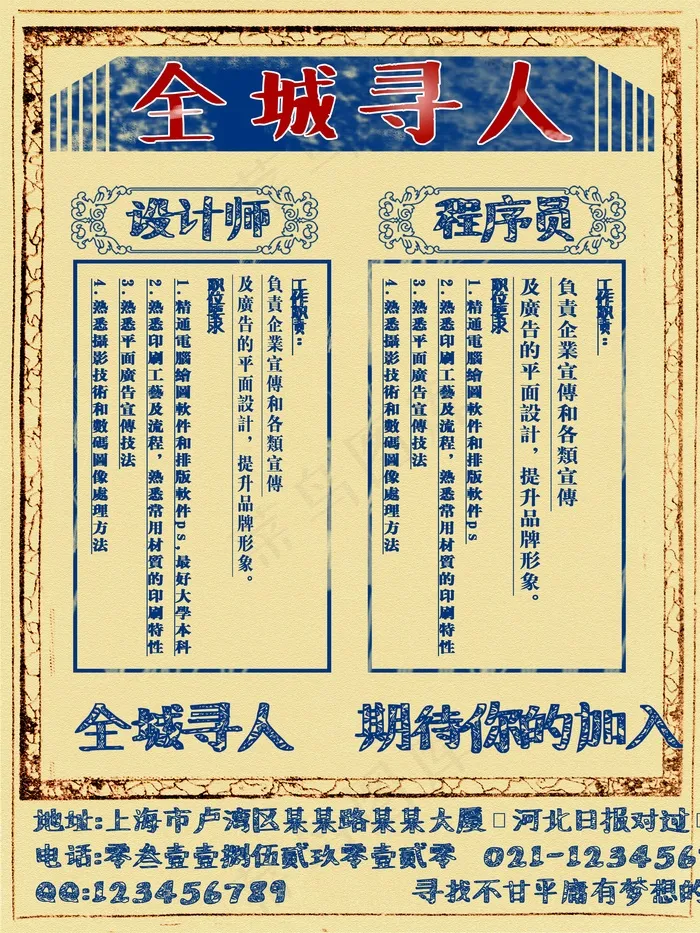 全城寻人
设计师
工作职责:
負責企業宣傳和各類宣傳
及廣告的平面設計，提升品牌形象。
职位要求
1.精通電腦繪圖軟件和排版軟件ps,最好大學本科
2.熟悉印刷工藝及流程，熟悉常用材質的印刷特性
3.熟悉平面廣告宣傳技法
4.熟悉攝影技術和數碼圖像處理方法
程序员
工作职责:
負責企業宣傳和各類宣傳
及廣告的平面設計，提升品牌形象。
职位要求
1.精通電腦繪圖軟件和排版軟件ps
2.熟悉印刷工藝及流程，熟悉常用材質的印刷特性
3.熟悉平面廣告宣傳技法
4.熟悉攝影技術和數碼圖像處理方法
全城寻人 期待你的加入
地址:上海市卢湾区某某路某某大厦 河北日报对过
电话:零叁壹壹捌伍贰玖零壹贰零 021-123456
QQ:123456789 寻找不甘平庸有梦想的